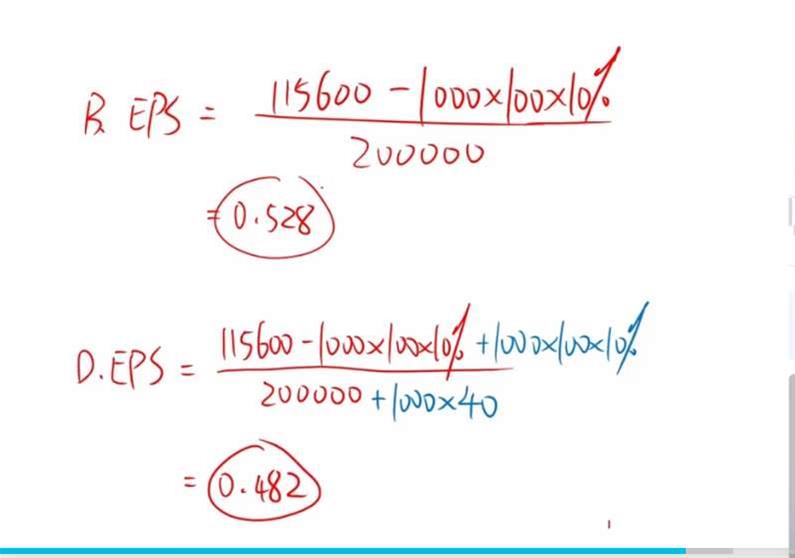 B. EPS = 115600 - 1000×100×10%
200000
= 0.528
D.EPS = 115600 - 1000×100×10% + 1000×100×10%
200000 + 1000×40
= 0.482